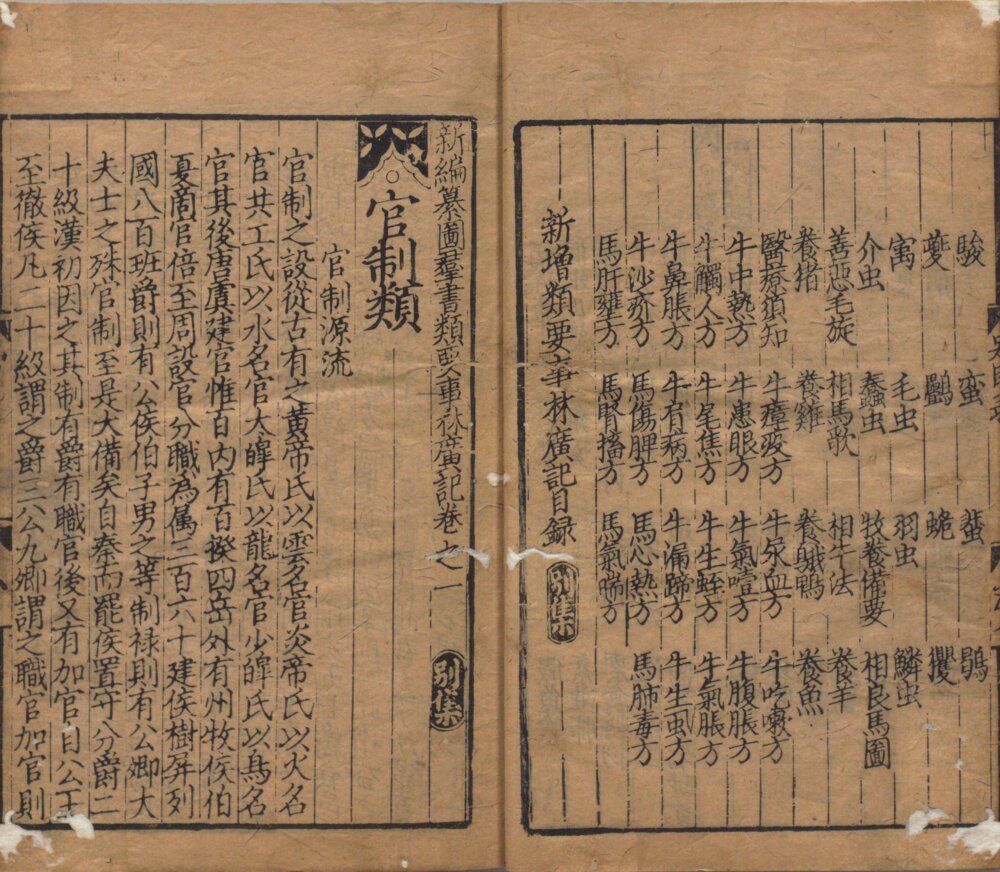 駿 蛮 蜚 鶪
夔 鸓 蛫 玃
寓 毛虫 羽虫 鱗虫
介虫 蠢虫 牧養備要 相良馬圖
善惡毛旋 相馬歌 相牛法 養羊
養猪 養雞 養鵝鴨 養魚
醫療須知 牛瘴疫方 牛尿血方 牛吃嗽方
牛中熱方 牛患眼方 牛氣噎方 牛腹脹方
牛觸人方 牛尾焦方 牛生蛭方 牛氣脹方
牛鼻脹方 牛有病方 牛漏蹄方 牛生虱方
牛沙疥方 馬傷脾方 馬心熱方 馬肺毒方
馬肝壅方 馬腎搐方 馬氣喘方
新增類要事林廣記目録 别集
新編纂圖羣書類要事林廣記卷之一 别集
官制類
官制源流
官制之設從古有之黄帝氏以雲名官炎帝氏以火名
官共工氏以水名官大皥氏以龍名官少皥氏以鳥名
官其後唐虞建官惟百内有百揆四岳外有州牧侯伯
夏商官倍至周設官分職為属三百六十建侯樹屏列
國八百班爵則有公侯伯子男之等制禄則有公卿大
夫士之殊官制至是大備矣自秦而罷侯置守分爵二
十級漢初因之其制有爵有職官後又有加官自公王
至徹侯凡二十級謂之爵三公九卿謂之職官加官則